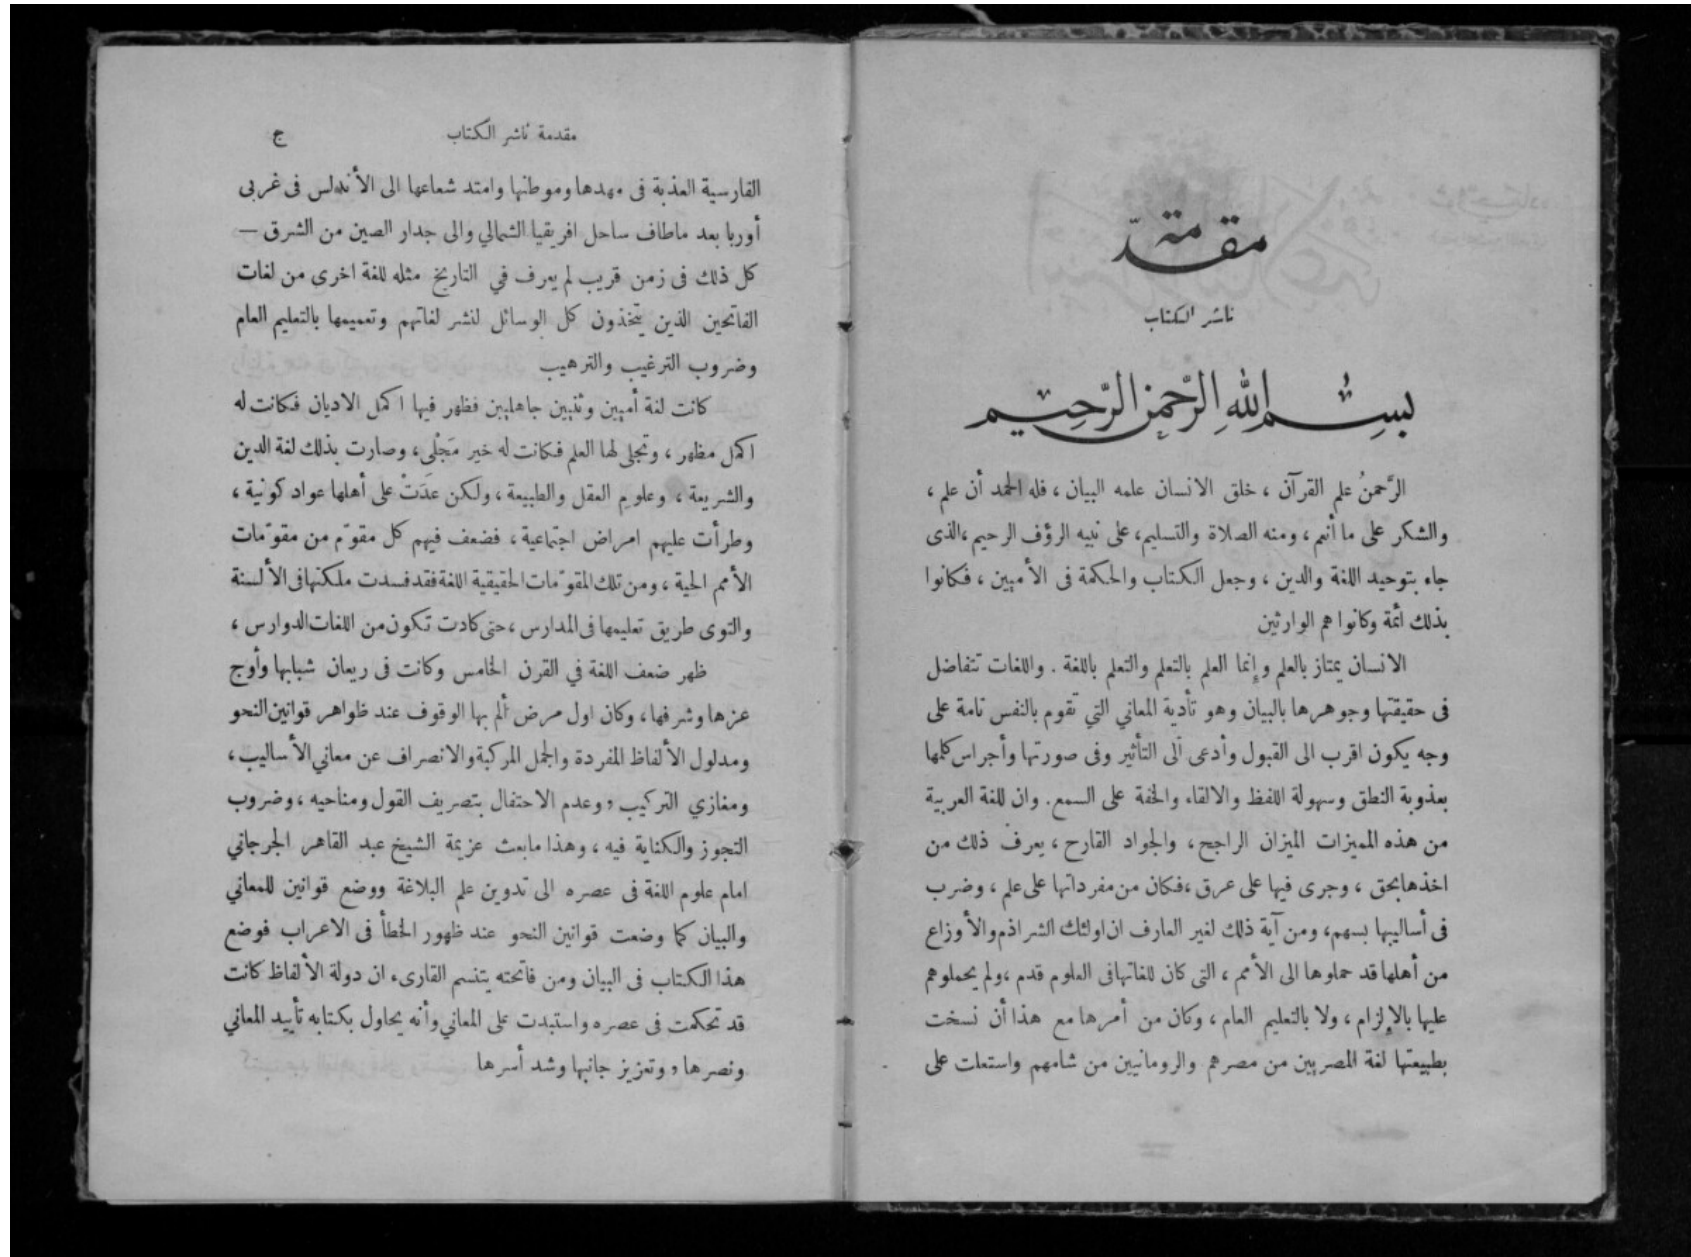 مقدمة
ناشر الكتاب
بسم الله الرحمن الرحيم
الرَّحمنُ علم القرآن ، خلق الانسان علمه البيان ، فله الحمد أن علم ،
والشكر على ما أنعم ، ومنه الصلاة والتسليم، على نبيه الرؤف الرحيم ،الذى
جاء بتوحيد اللغة والدين ، وجعل الكتاب والحكمة فى الأميين ، فكانوا
بذلك أئمة وكانوا هم الوارثين
الانسان يمتاز بالعلم وإنما العلم بالتعلم والتعلم باللغة . واللغات تتفاضل
فى حقيقتها وجوهرها بالبيان وهو تأدية المعاني التي تقوم بالنفس تامة على
وجه يكون اقرب الى القبول وأدعى الى التأثير وفى صورتها وأجراس كلمها
بعذوبة النطق وسهولة اللفظ والالقاء والخفة على السمع. وان للغة العربية
من هذه المميزات الميزان الراجح، والجواد القارح ، يعرف ذلك من
اخذها بحق ، وجرى فيها على عرق ،فكان من مفرداتها على علم ، وضرب
فى أساليبها بسهم، ومن آية ذلك لغير العارف ان اولئك الشراذم والأوزاع
من أهلها قد حملوها الى الأمم ، التى كان للغاتها فى العلوم قدم ،ولم يحملوهم
عليها بالإلزام ، ولا بالتعليم العام ، وكان من أمرها مع هذا أن نسخت
بطبيعتها لغة المصريين من مصرهم والرومانيين من شامهم واستعلت على
مقدمة ناشر الكتاب ج
الفارسية العذبة فى مهدها وموطنها وامتد شعاعها الى الأندلس فى غربى
أوربا بعد ماطاف ساحل افريقيا الشمالي والى جدار الصين من الشرق —
كل ذلك فى زمن قريب لم يعرف في التاريخ مثله للغة اخرى من لغات
الفاتحين الذين يتخذون كل الوسائل لنشر لغاتهم وتعميمها بالتعليم العام
وضروب الترغيب والترهيب
كانت لغة أميين وثنيين جاهليين فظهر فيها اكمل الاديان فكانت له
اكمل مظهر ، وتجلى لها العلم فكانت له خير مَجْلى، وصارت بذلك لغة الدين
والشريعة ، وعلوم العقل والطبيعة ، ولكن عدَتْ على أهلها عواد كونية ،
وطرأت عليهم امراض اجتماعية ، فضعف فيهم كل مقوّم من مقوّمات
الأمم الحية ، ومن تلك المقوّمات الحقيقية اللغة فقد فسدت ملكتها فى الألسنة
والتوى طريق تعليمها فى المدارس ،حتى كادت تكون من اللغات الدوارس ،
ظهر ضعف اللغة في القرن الخامس وكانت فى ريعان شبابها وأوج
عزها وشرفها، وكان اول مرض ألم بها الوقوف عند ظواهر قوانين النحو
ومدلول الألفاظ المفردة والجمل المركبة والانصراف عن معاني الأساليب ،
ومغازي التركيب ، وعدم الاحتفال بتصريف القول ومناحيه ، وضروب
التجوز والكناية فيه ، وهذا مابعث عزيمة الشيخ عبد القاهر الجرجاني
امام علوم اللغة فى عصره الى تدوين علم البلاغة ووضع قوانين للمعاني
والبيان كما وضعت قوانين النحو عند ظهور الخطأ فى الاعراب فوضع
هذا الكتاب فى البيان ومن فاتحته يتنسم القارىء ان دولة الألفاظ كانت
قد تحكمت فى عصره واستبدت على المعاني وأنه يحاول بكتابه تأييد المعاني
ونصرها ، وتعزيز جانبها وشد أسرها